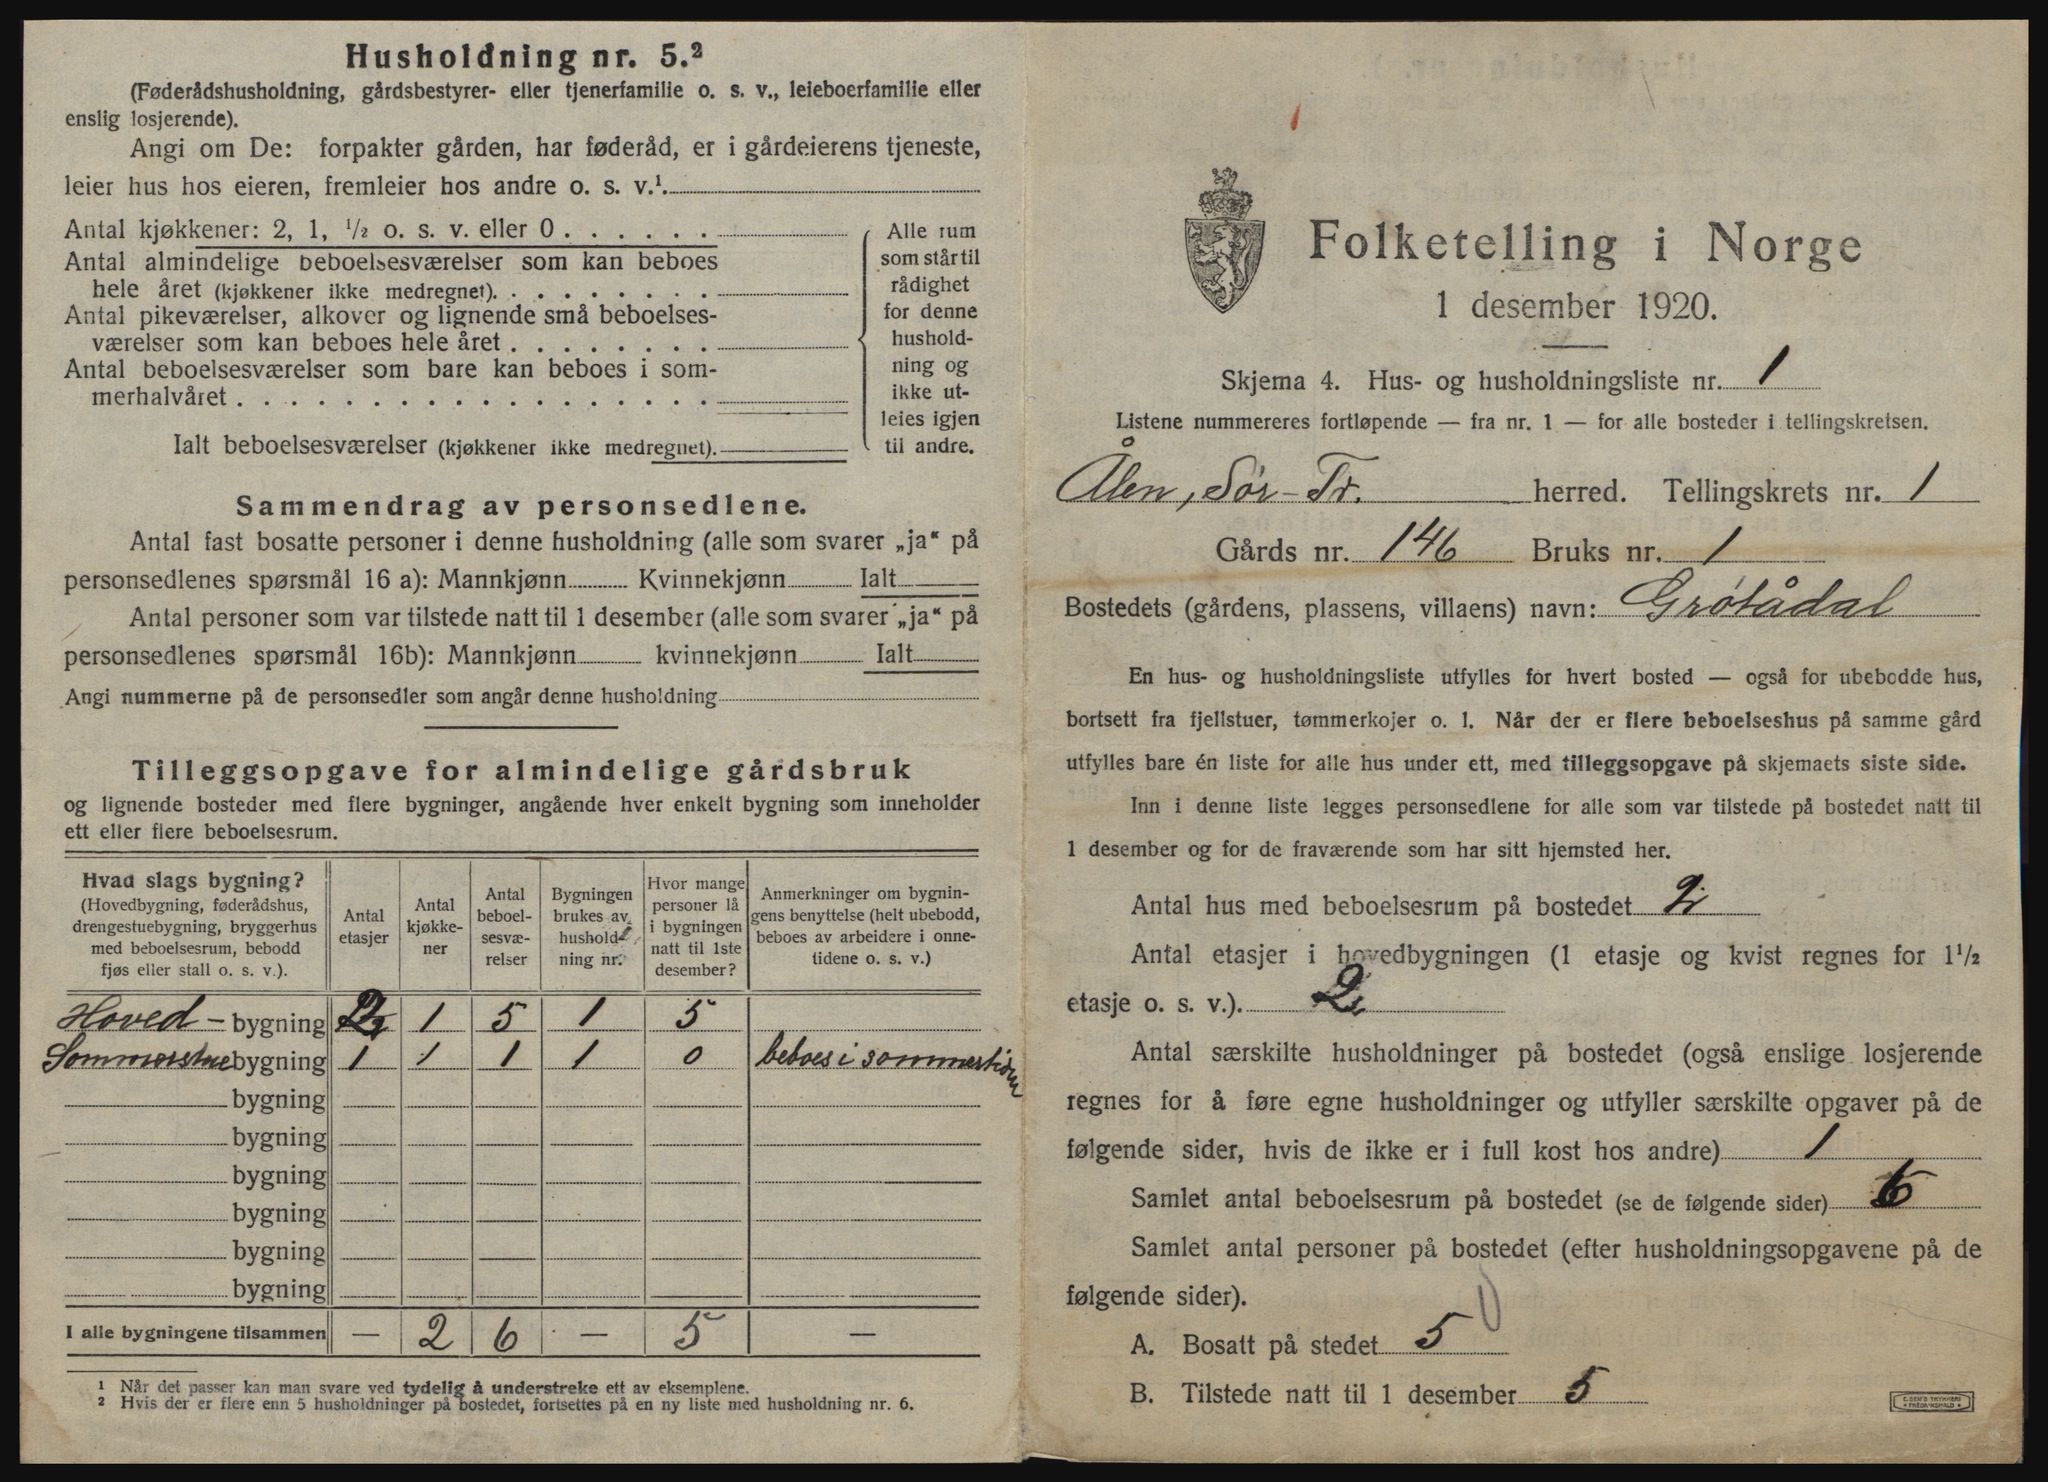 Husholdning nr. 5.²
(Føderådshusholdning, gårdsbestyrer- eller tjenerfamilie o. s. v., leieboerfamilie eller
enslig losjerende).
Angi om De: forpakter gården, har føderåd, er i gårdeierens tjeneste,
leier hus hos eieren, fremleier hos andre o. s. v.¹.
Antal kjøkkener: 2, 1, ½ o. s. v. eller 0
Antal almindelige beboelsesværelser som kan beboes
hele året (kjøkkener ikke medregnet).
Antal pikeværelser, alkover og lignende små beboelses-
værelser som kan beboes hele året
Antal beboelsesværelser som bare kan beboes i som-
merhalvåret
Ialt beboelsesværelser (kjøkkener ikke medregnet).
Alle rum
som står til
rådighet
for denne
hushold-
ning og
ikke ut-
leies igjen
til andre.
Sammendrag av personsedlene.
Antal fast bosatte personer i denne husholdning (alle som svarer „ja“ på
personsedlenes spørsmål 16 a): Mannkjønn Kvinnekjønn Ialt
Antal personer som var tilstede natt til 1 desember (alle som svarer „ja“ på
personsedlenes spørsmål 16b): Mannkjønn kvinnekjønn Ialt
Angi nummerne på de personsedler som angår denne husholdning
Tilleggsopgave for almindelige gårdsbruk
og lignende bosteder med flere bygninger, angående hver enkelt bygning som inneholder
ett eller flere beboelsesrum.
Hvad slags bygning?
(Hovedbygning, føderådshus,
drengestuebygning, bryggerhus
med beboelsesrum, bebodd
fjøs eller stall o. s. v.).
Antal
etasjer
Antal
kjøkke-
ner
Antal
beboel-
sesvæ-
relser
Bygningen
brukes av
hushold-
ning nr.
Hvor mange
personer lå
i bygningen
natt til 1ste
desember?
Anmerkninger om bygnin-
gens benyttelse (helt ubebodd,
beboes av arbeidere i onne-
tidene o. s. v.)
Hoved- bygning 2 1 5 1 5
Sommerstue bygning 1 1 1 1 0 beboes i sommertiden
bygning
bygning
bygning
bygning
bygning
bygning
I alle bygningene tilsammen — 2 6 — 5 —
¹ Når det passer kan man svare ved tydelig å understreke ett av eksemplene.
² Hvis der er flere enn 5 husholdninger på bostedet, fortsettes på en ny liste med husholdning nr. 6.
1
Folketelling i Norge
1 desember 1920.
Skjema 4. Hus- og husholdningsliste nr. 1
Listene nummereres fortløpende — fra nr. 1 — for alle bosteder i tellingskretsen.
Ålen, Sør-Tr. herred. Tellingskrets nr. 1
Gårds nr. 146 Bruks nr. 1
Bostedets (gårdens, plassens, villaens) navn: Grøtådal
En hus- og husholdningsliste utfylles for hvert bosted — også for ubebodde hus,
bortsett fra fjellstuer, tømmerkojer o. l. Når der er flere beboelseshus på samme gård
utfylles bare én liste for alle hus under ett, med tilleggsopgave på skjemaets siste side.
Inn i denne liste legges personsedlene for alle som var tilstede på bostedet natt til
1 desember og for de fraværende som har sitt hjemsted her.
Antal hus med beboelsesrum på bostedet 2
Antal etasjer i hovedbygningen (1 etasje og kvist regnes for 1½
etasje o. s. v.). 2
Antal særskilte husholdninger på bostedet (også enslige losjerende
regnes for å føre egne husholdninger og utfyller særskilte opgaver på de
følgende sider, hvis de ikke er i full kost hos andre) 1
Samlet antal beboelsesrum på bostedet (se de følgende sider) 6
Samlet antal personer på bostedet (efter husholdningsopgavene på de
følgende sider).
A. Bosatt på stedet 5
B. Tilstede natt til 1 desember 5